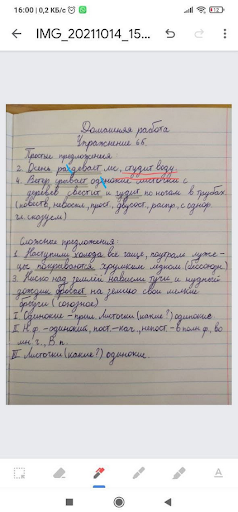 16:00 | 0,2 КБ/с
63
IMG_20211014_15...
Домашняя работа
Упражнение 66.
Простые предложения
2. Осень раздевает лес, студит воду.
4. Ветер срывает одинокие листочки с
деревьев свестит и гудит по ночам в трубах
(повеств, невоскл, прост, двусост, распр, с однор
сказуем)
Сложные предложения:
1. Наступили холода всё чаще, поутрам лужи-
цы покрываются хрупким ледком (бессоюзн)
3. Низко над землёй нависли тучи и нудный
дождик бросает на землю свои мелкие
брызги (союзное)
I Одинокие - прил. Листочки (какие?) одинокие
II Н.ф. - одинокий, пост. - кач., непост. - в полн. ф., во
мн. ч., В.п.
III Листочки (какие?) одинокие.
A